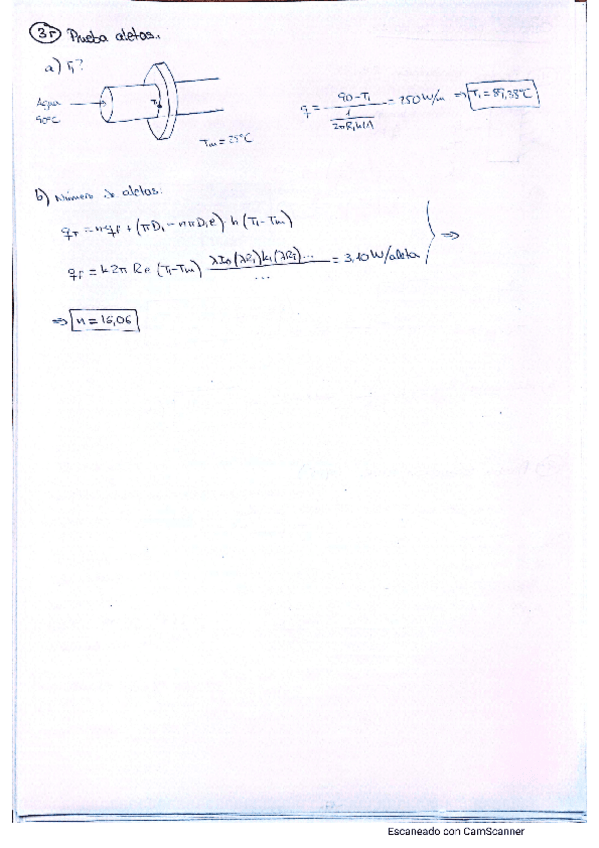 35 Prueba aletas.
a) T₁?
Agua
90°C
T₁
T∞ = 25°C
q = (90 - T₁) / (1 / 2πR₁h(A)) = 250 W/m ⇒ T₁ = 87,35°C
b) Número de aletas:
q_T = n·q_f + (πD₁ - nπD₁e)·h (T₁ - T∞)
q_f = k2πRe (T₁ - T∞) λI₀(λR₁)k₁(λR₂)... / ... = 3,10 W/aleta } ⇒
⇒ n = 16,06
Escaneado con CamScanner